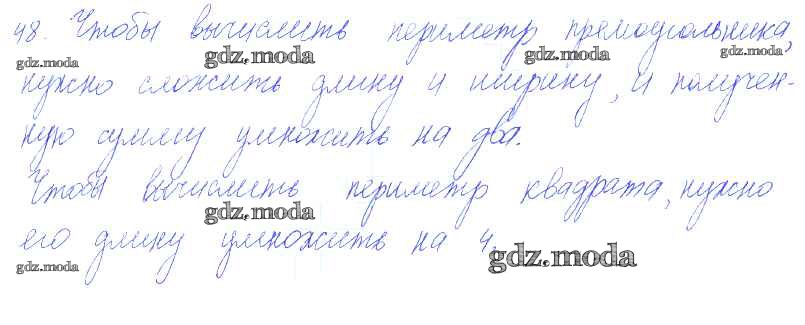 48. Чтобы вычислить периметр прямоугольника,
gdz.moda gdz.moda gdz.moda
нужно сложить длину и ширину, и получен-
ную сумму умножить на два.
Чтобы вычислить периметр квадрата, нужно
gdz.moda
его длину умножить на 4.
gdz.moda gdz.moda